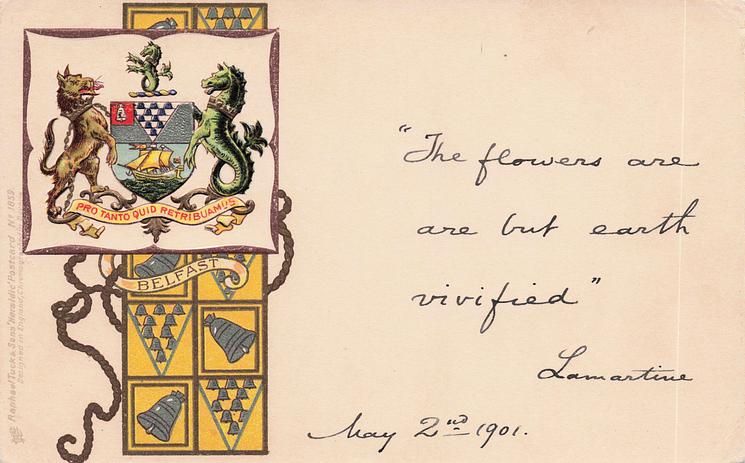 PRO TANTO QUID RETRIBUAMUS
BELFAST
Raphael Tuck & Sons' "Heraldic" Postcard No. 1859.
Designed in England,
"The flowers are
are but earth
vivified"
Lamartine
May 2nd 1901.